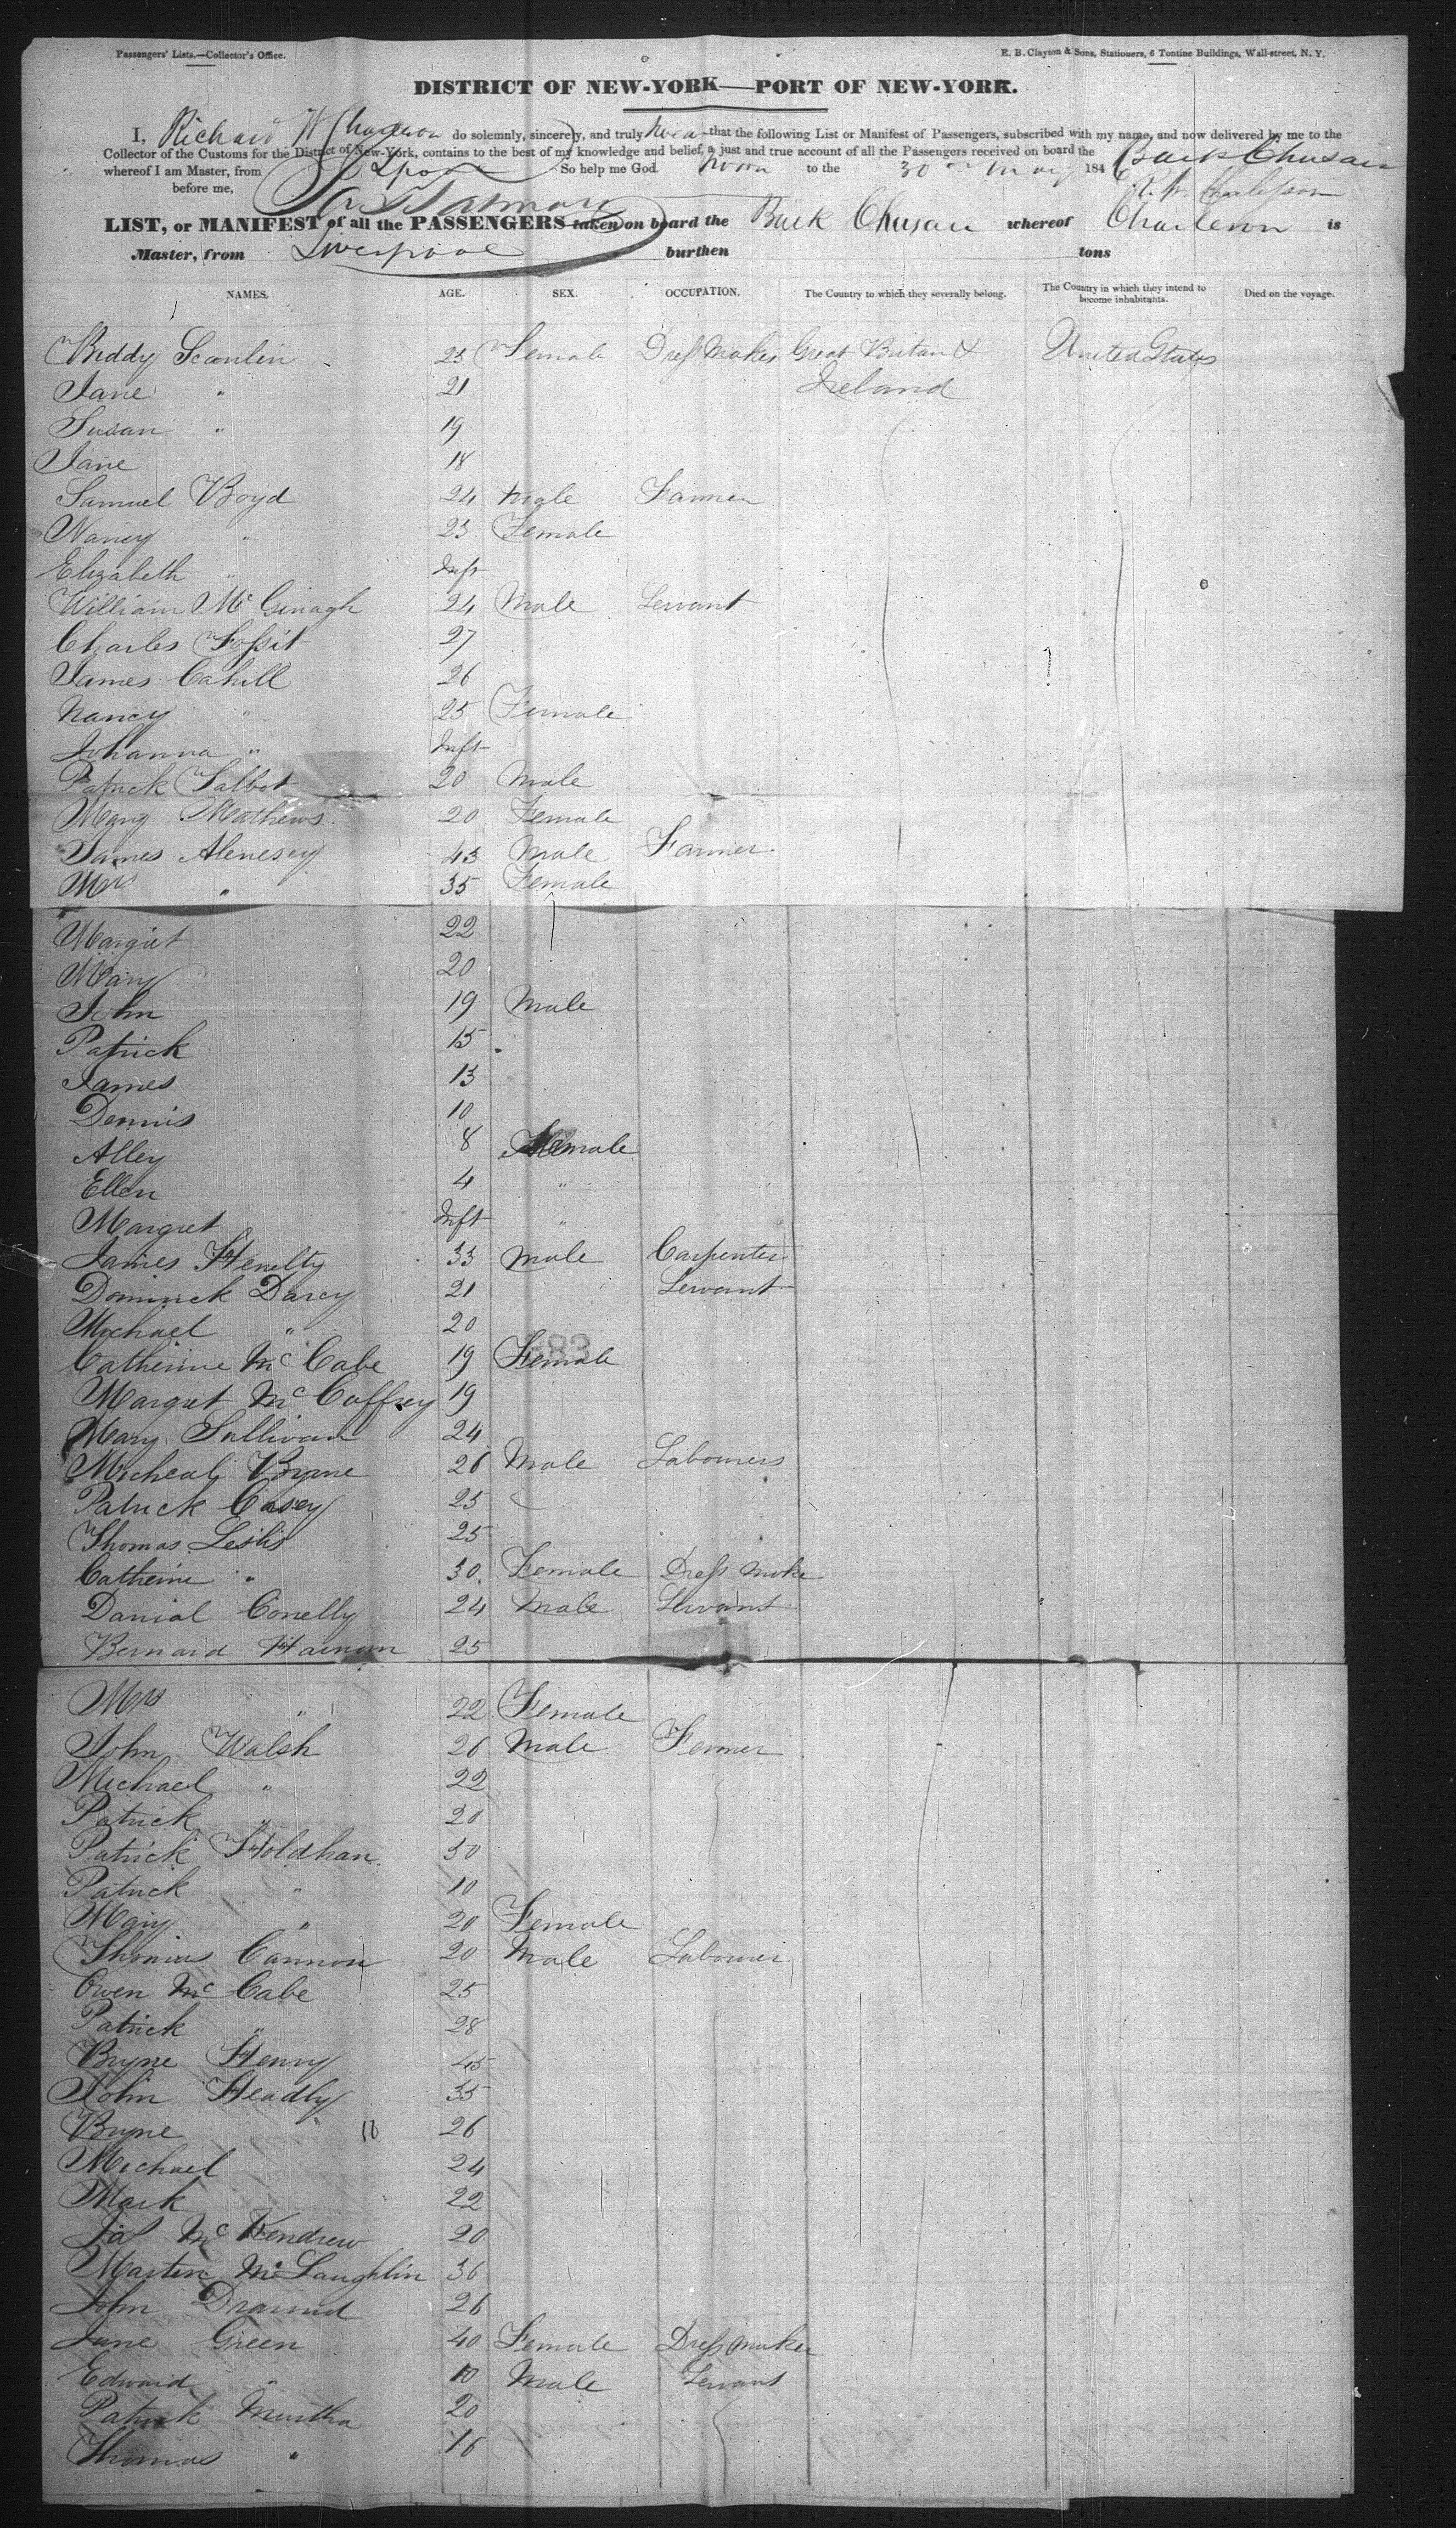 Passengers' Lists.—Collector's Office.
E. B. Clayton & Sons, Stationers, 6 Tontine Buildings, Wall-street, N. Y.
DISTRICT OF NEW-YORK—PORT OF NEW-YORK.
I, Richard W do solemnly, sincerely, and truly swear that the following List or Manifest of Passengers, subscribed with my name, and now delivered by me to the
Collector of the Customs for the District of New-York, contains to the best of my knowledge and belief, a just and true account of all the Passengers received on board the Bark Chusan
whereof I am Master, from Lpool So help me God. Sworn to the 30 May 1846
before me,
LIST, or MANIFEST of all the PASSENGERS taken on board the Bark Chusan whereof Charleson is
Master, from Liverpool burthen tons
NAMES. AGE. SEX. OCCUPATION. The Country to which they severally belong. The Country in which they intend to become inhabitants. Died on the voyage.
Biddy Scanlin 23 Female Dress Maker Great Britain & United States
Jane " 21 Ireland
Susan " 19
Jane 18
Samuel Boyd 24 Male Farmer
Nancy " 23 Female
Elizabeth " Inft
William Mc Ginagh 24 Male Servant
Charles Fossit 27
James Cahill 26
Nancy " 25 Female
Johanna " Inft
Patrick Talbot 20 Male
Mary Mathews 20 Female
James Alenesey 43 Male Farmer
Mrs " 35 Female
Margret 22
Mary 20
John 19 Male
Patrick 15
James 13
Dennis 10
Alley 8 Female
Ellen 4 "
Margret Inft "
James Henelty 33 Male Carpenter
Dominick Darcy 21 Servant
Michael " 20
Catherine Mc Cabe 19 Female
Margret Mc Caffrey 19
Mary Sullivan 24
Micheal Byrne 26 Male Labourers
Patrick Casey 23
Thomas Leslis 25
Catherine " 30 Female Dress Make
Danial Conelly 24 Male Servant
Bernard Hainan 25
Mrs " 22 Female
John Walsh 26 Male Fermer
Michael " 22
Patrick " 20
Patrick Holdhan 30
Patrick " 10
Mary " 20 Female
Thomas Cannon 20 Male Labourer
Owen Mc Cabe 25
Patrick " 28
Bryne Henry 45
John Headly 35
Bryne 26
Michael 24
Mark 22
Jas Mc Kendrew 20
Martin McLaughlin 36
John 26
Jane Green 40 Female Dress maker
Edward " 10 Male Servant
Patrick Murtha 20
Thomas " 16